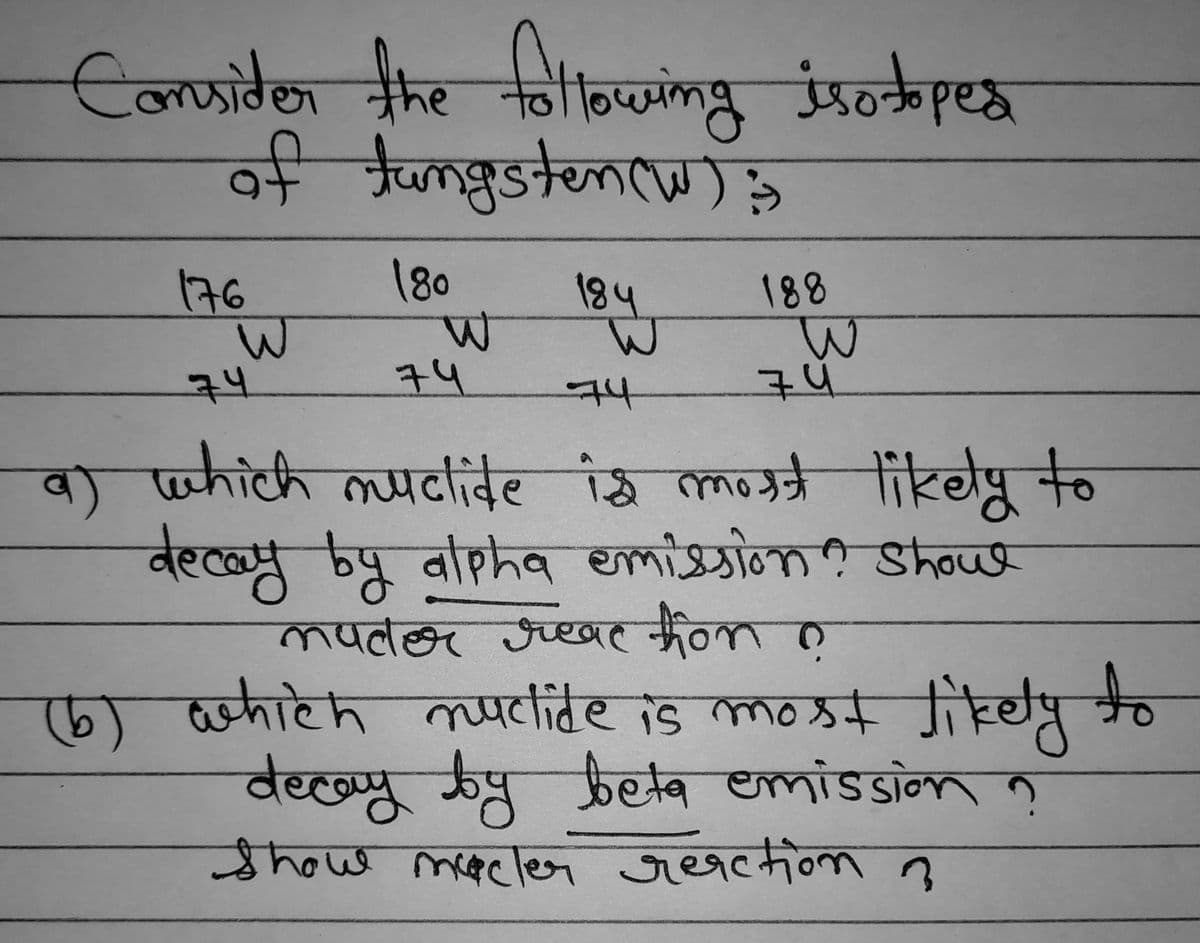 Consider the following isotopes
of tungsten(W) :→
176 180 184 188
W W W W
74 74 74 74
a) which nuclide is most likely to
decay by alpha emission? Show
nucler reaction ?
(b) which nuclide is most likely to
decay by beta emission ?
Show nucler reaction ?